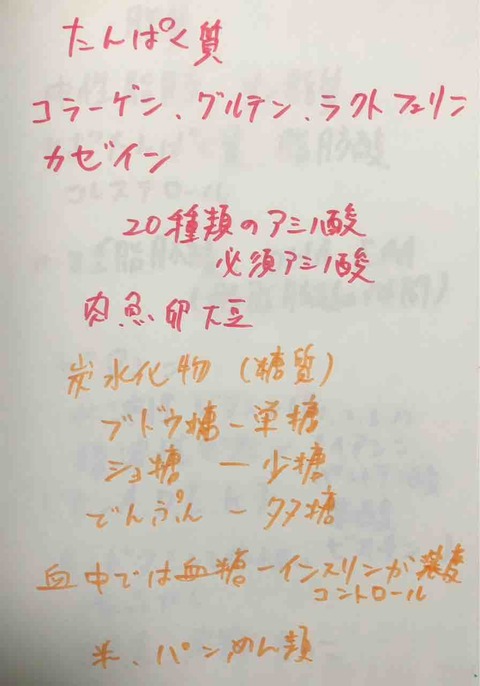 たんぱく質
コラーゲン、グルテン、ラクトフェリン
カゼイン
20種類のアミノ酸
必須アミノ酸
肉魚卵大豆
炭水化物(糖質)
ブドウ糖ー単糖
ショ糖ー少糖
でんぷんー多糖
血中では血糖ーインスリンが濃度
コントロール
米、パンめん類